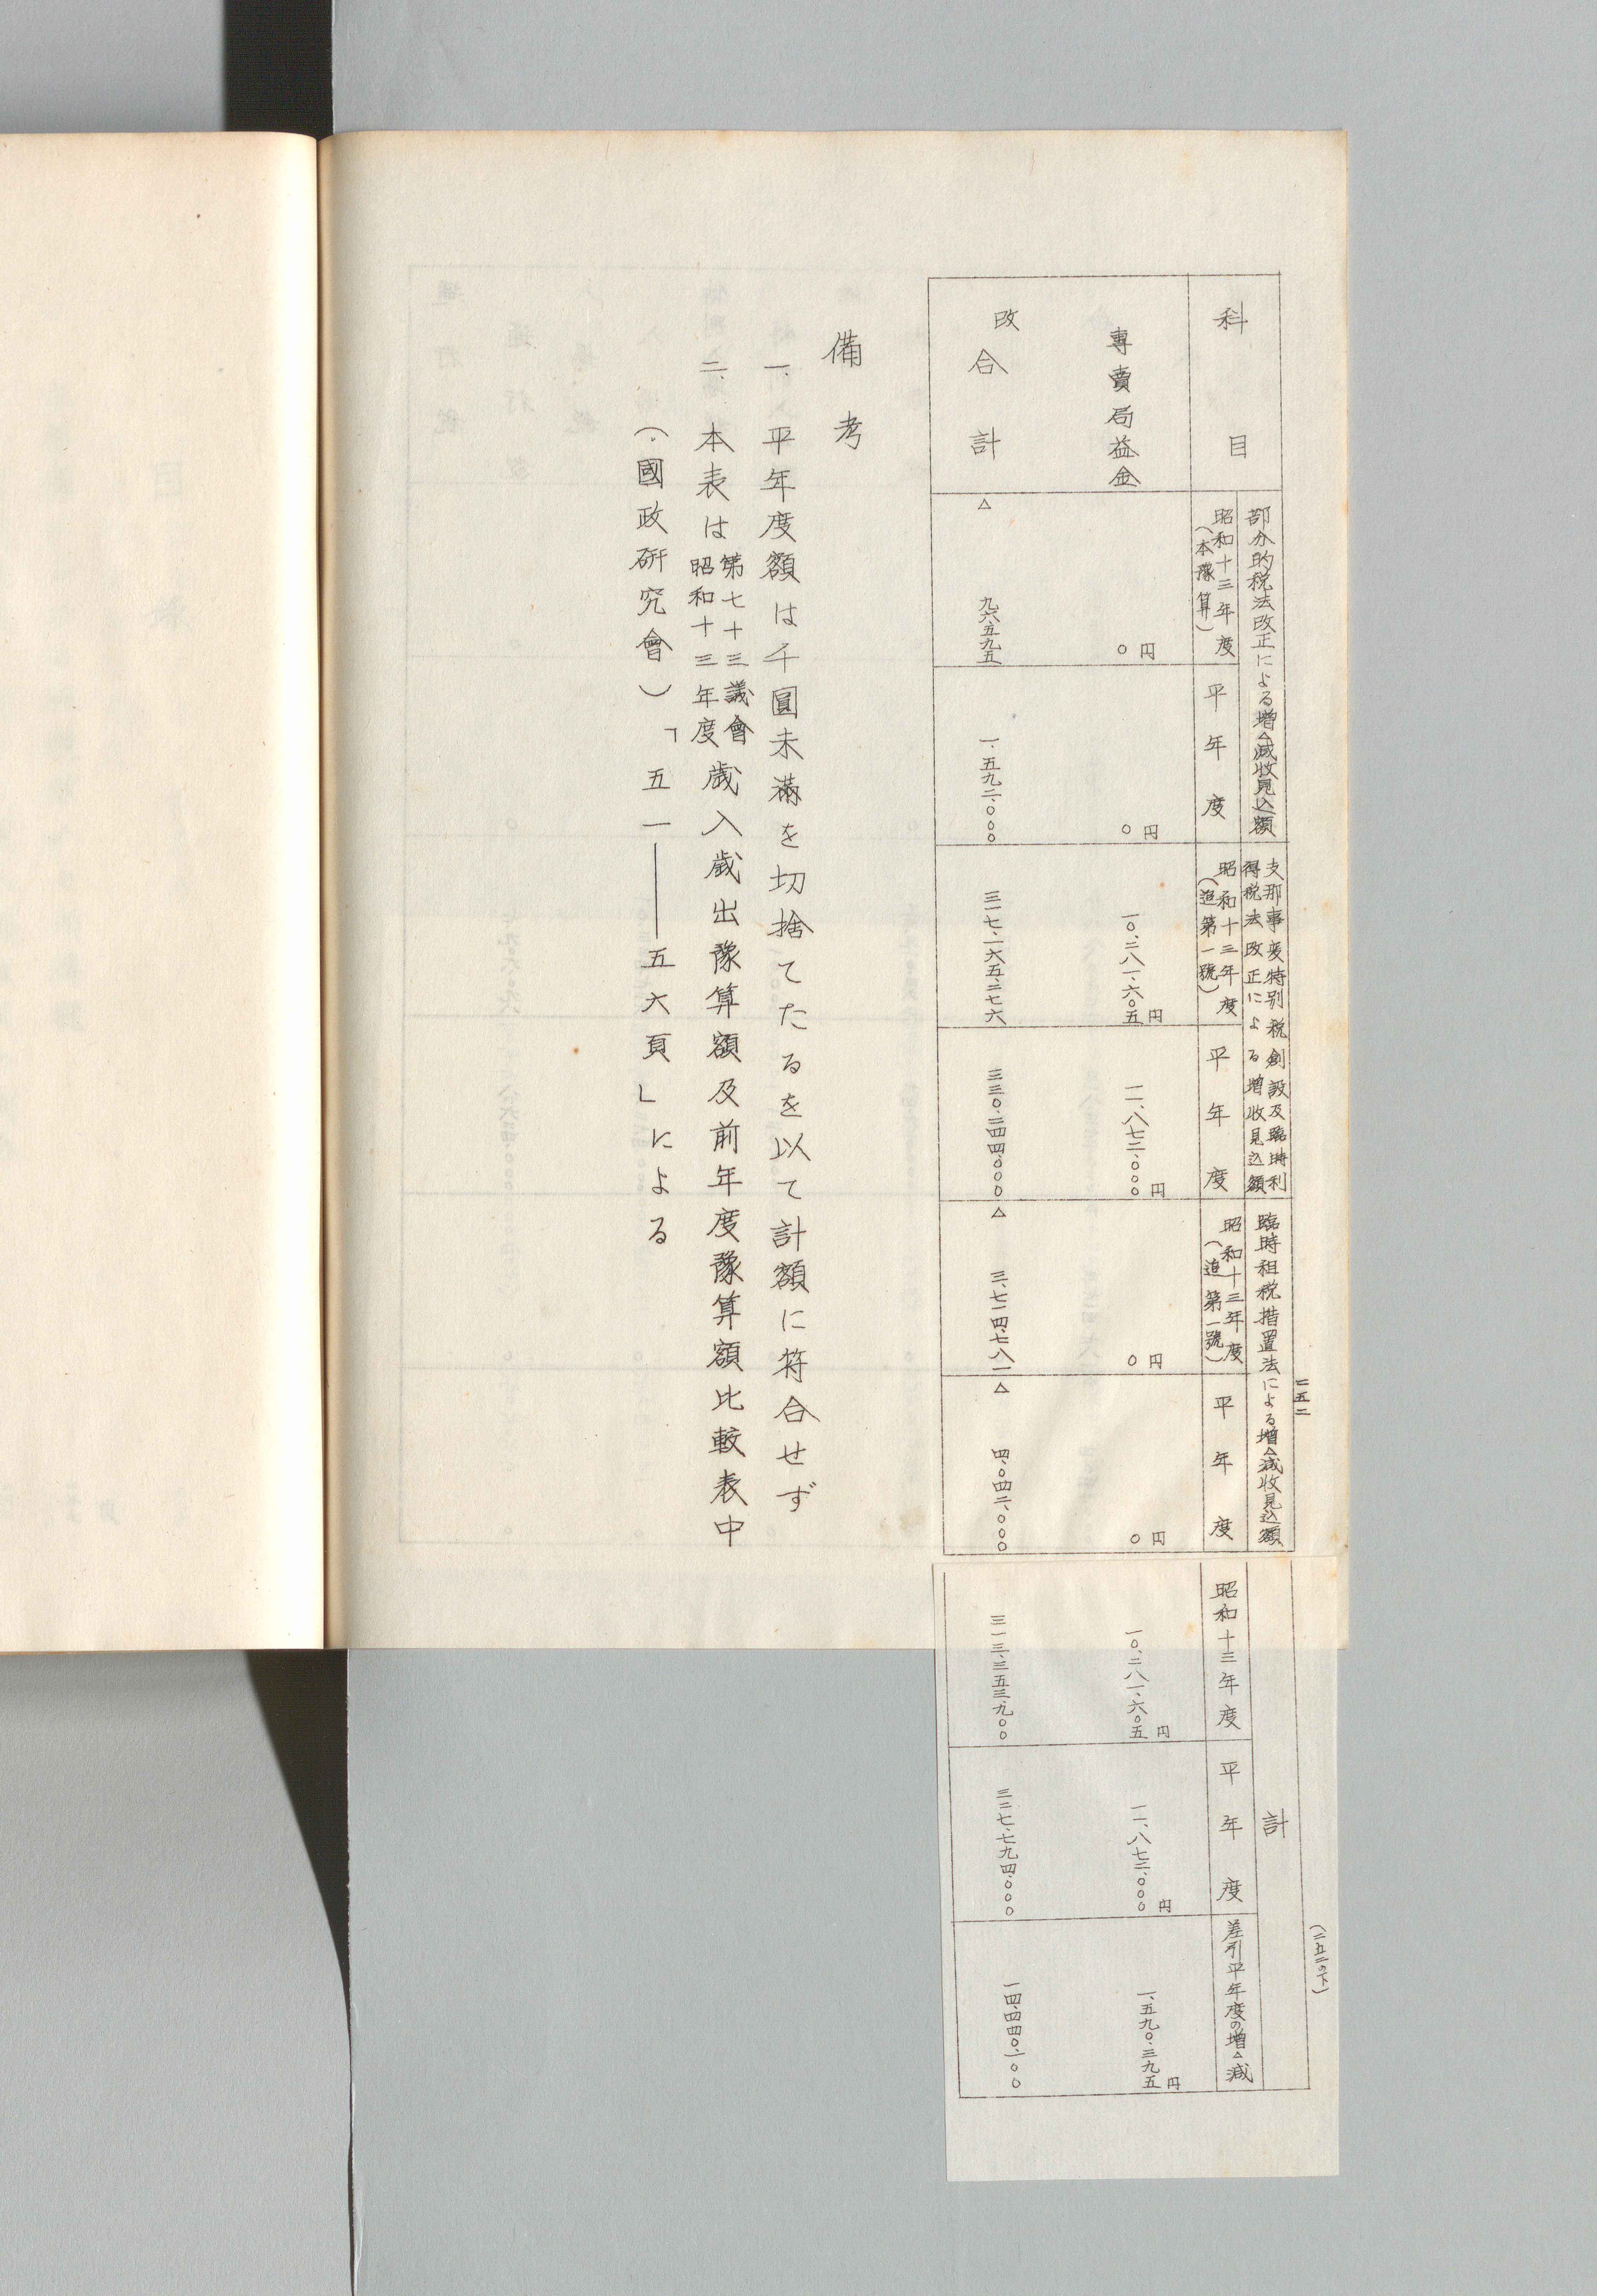 二五二
科目
部分的税法改正による増△減收見込額
昭和十三年度
(本豫算)
平年度
支那事変特別税創設及臨時利
得税法改正による増收見込額
昭和十三年度
(追第一號)
平年度
臨時租税措置法による増△減收見込額
昭和十三年度
(追第一號)
平年度
(二五二の下)
計
昭和十三年度
平年度
差引平年度の増△減
專賣局益金
〇円
〇円
一〇、二八一、六〇五円
一一、八七二、〇〇〇円
〇円
〇円
一〇、二八一、六〇五円
一一、八七二、〇〇〇円
一、五九〇、三九五円
改合計
△ 九六、五九五
一、五九二、〇〇〇
三一七、一六五、二七六
三三〇、二四四、〇〇〇
△ 三、七一四、七八一
△ 四、〇四二、〇〇〇
三一三、三五三、九〇〇
三二七、七九四、〇〇〇
一四、四四〇、一〇〇
備考
一、平年度額は千圓未滿を切捨てたるを以て計額に符合せず
二、本表は第七十三議會昭和十三年度歳入歳出豫算額及前年度豫算額比較表中
(國政研究會)「五一——五六頁」による